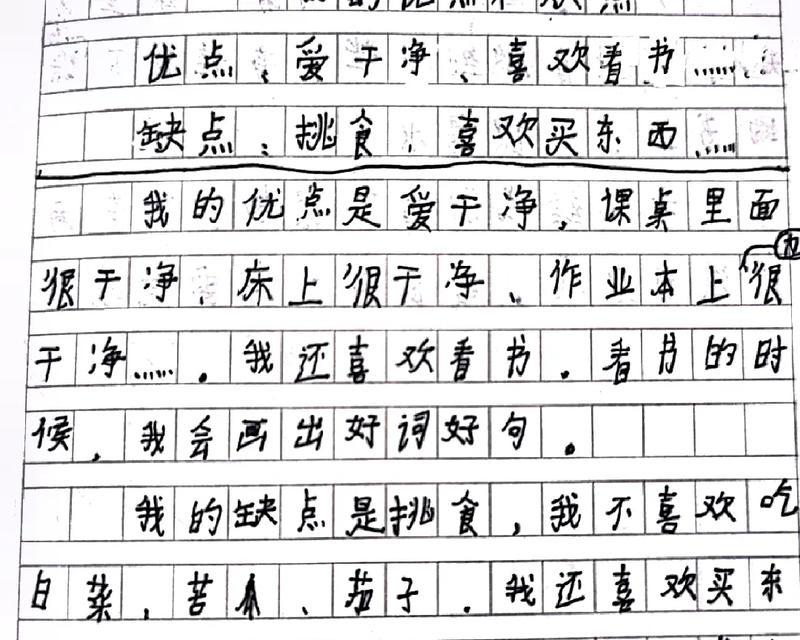 优点：爱干净、喜欢看书……
缺点：挑食，喜欢买东西……
我的优点是爱干净，课桌里面
很干净，床上很干净、作业本上很
干净……。我还喜欢看书。看书的时
候，我会画出好词好句。
我的缺点是挑食，我不喜欢吃
白菜，苦、茄子。我还喜欢买东